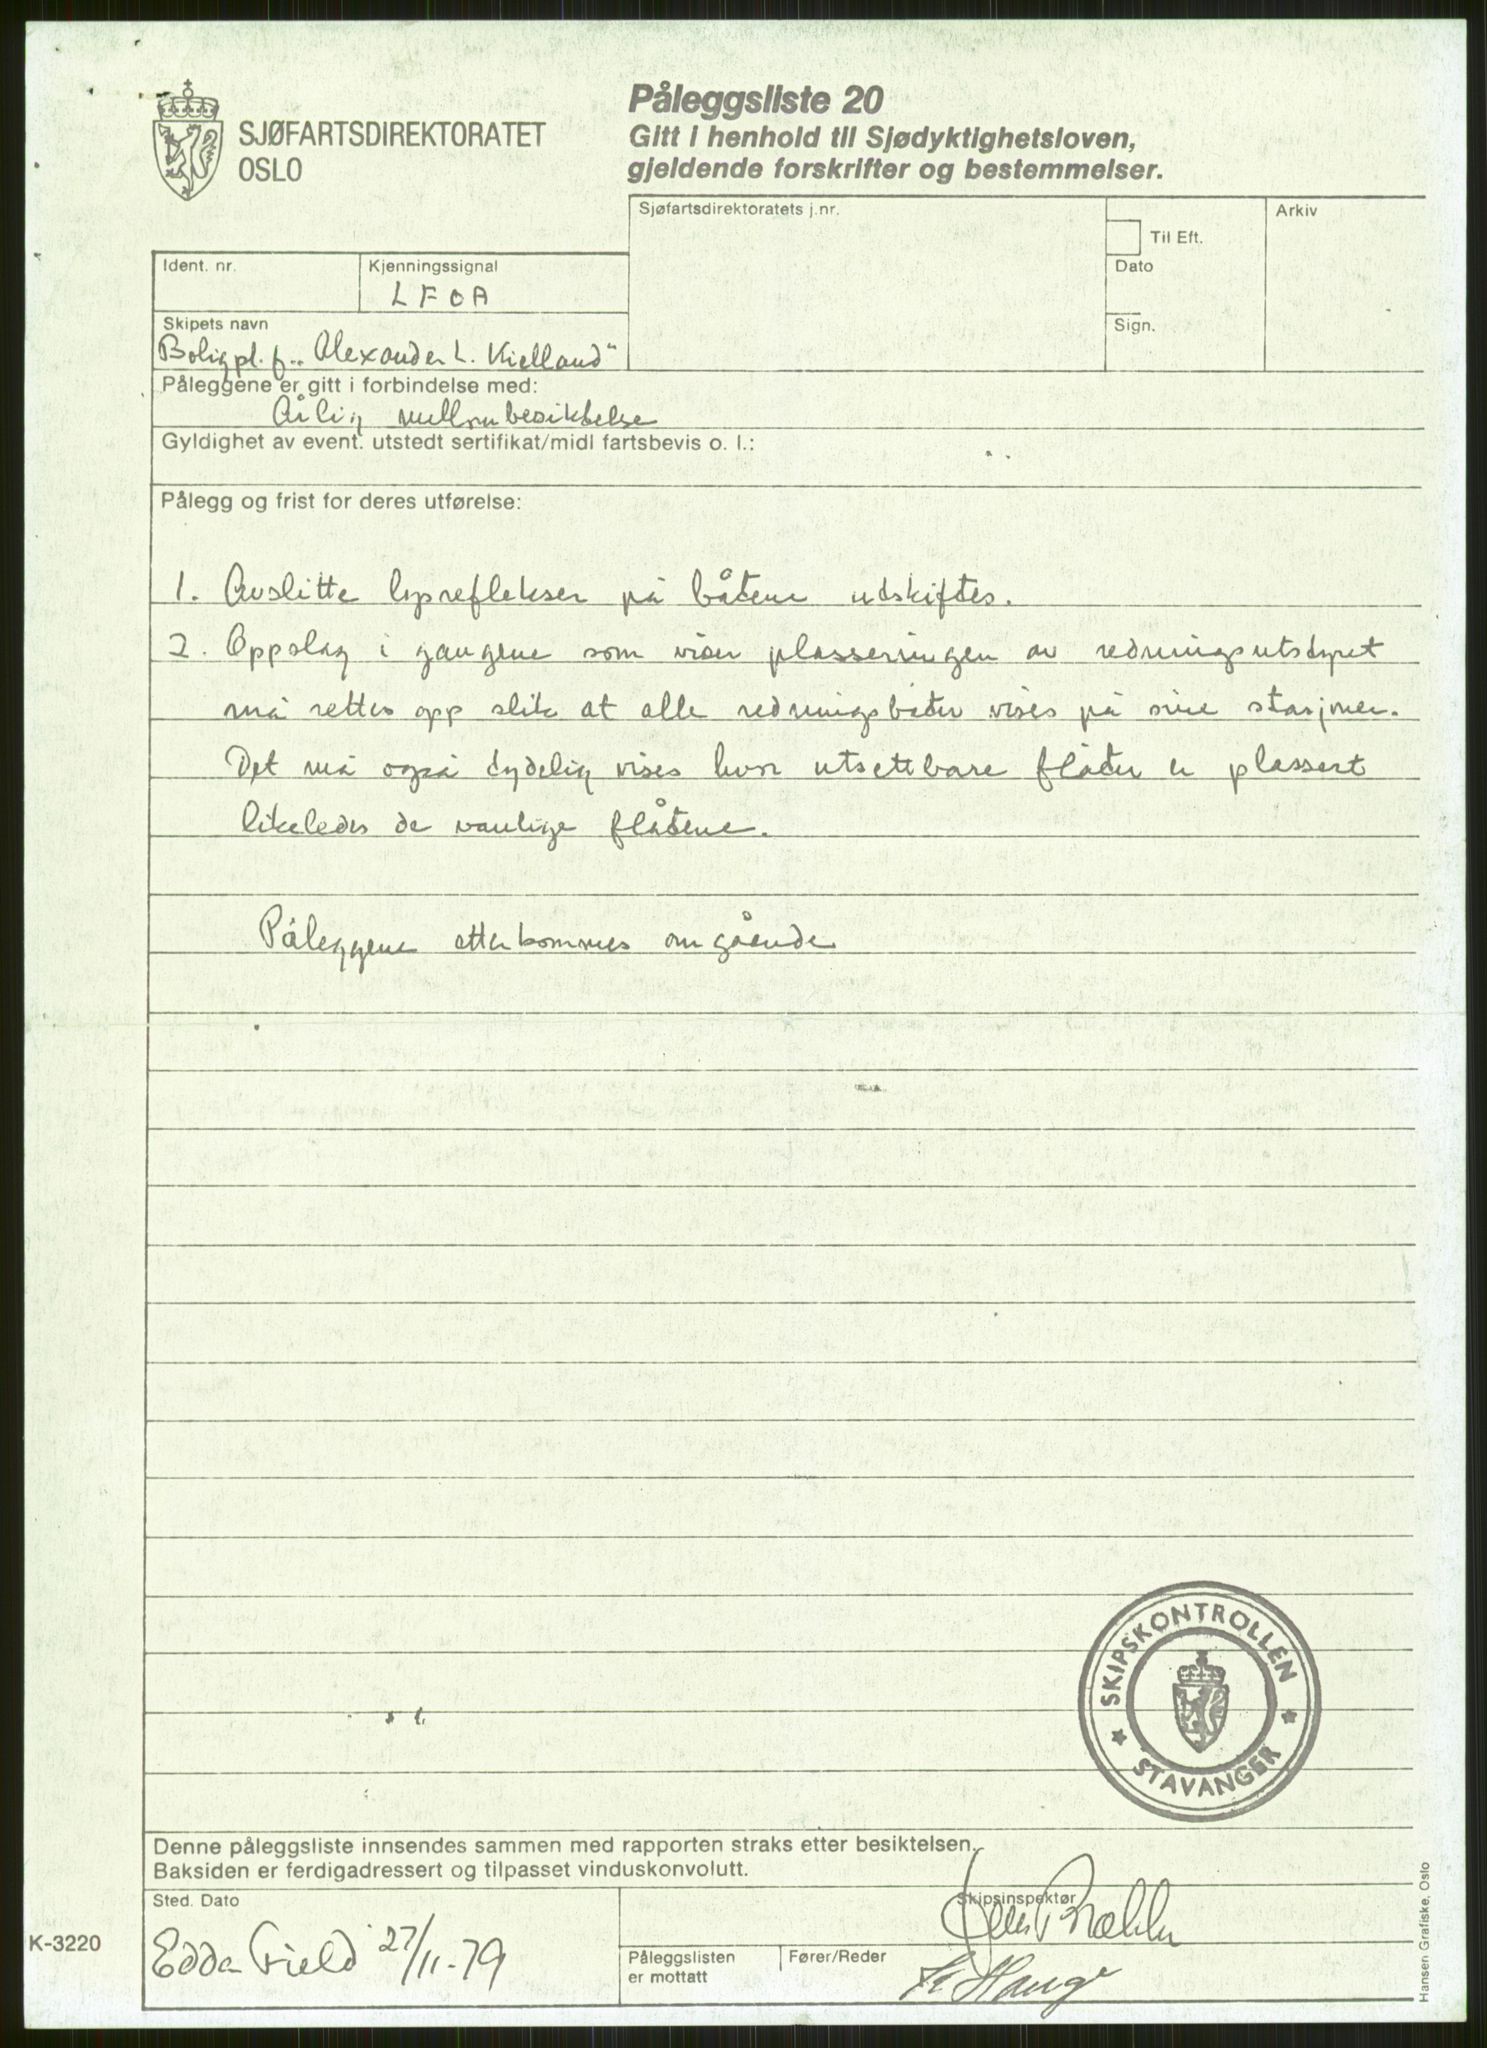 SJØFARTSDIREKTORATET
OSLO
Påleggsliste 20
Gitt i henhold til Sjødyktighetsloven,
gjeldende forskrifter og bestemmelser.
Sjøfartsdirektoratets j.nr.
Til Eft.
Arkiv
Dato
Sign.
Ident. nr.
Kjenningssignal
LFOA
Skipets navn
Boligpl. f. „Alexander L. Kielland"
Påleggene er gitt i forbindelse med:
Årlig mellombesiktelse
Gyldighet av event. utstedt sertifikat/midl fartsbevis o. l.:
Pålegg og frist for deres utførelse:
1. Avslitte lysreflekser på båtene udskiftes.
2. Oppslag i gangene som viser plasseringen av redningsutstyret
må rettes opp slik at alle redningsbåter vises på sine stasjoner.
Det må også tydelig vises hvor utsettbare flåter er plassert
likeledes de vanlige flåtene.
Påleggene etterkommes omgående
SKIPSKONTROLLEN
STAVANGER
Denne påleggsliste innsendes sammen med rapporten straks etter besiktelsen.
Baksiden er ferdigadressert og tilpasset vinduskonvolutt.
Sted. Dato
Edda Field 27/11-79
Skipsinspektør
Påleggslisten
er mottatt
Fører/Reder
Hauge
K-3220
Hansen Grafiske, Oslo